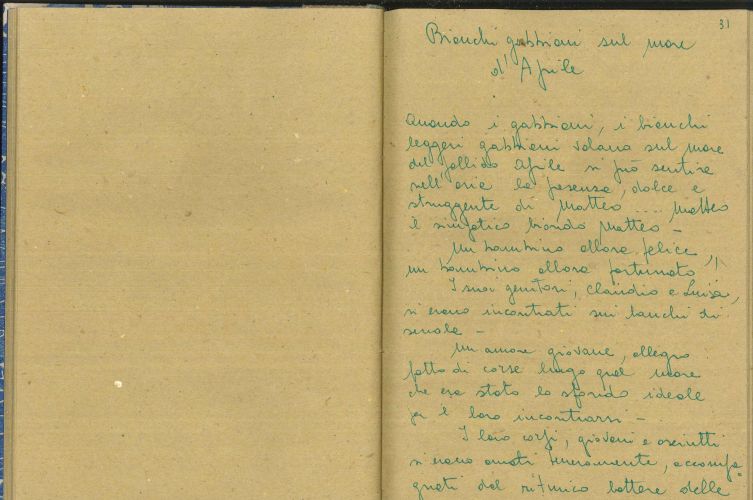 31
Bianchi gabbiani sul mare
d'Aprile
Quando i gabbiani, i bianchi
leggeri gabbiani volano sul mare
del pallido Aprile si può sentire
nell'aria la presenza, dolce e
struggente di Matteo .... Matteo
il simpatico biondo Matteo -
Un bambino allora felice,
un bambino allora fortunato!
I suoi genitori, Claudio e Luisa,
si erano incontrati sui banchi di
scuola -
Un amore giovane, allegro
fatto di corse lungo quel mare
che era stato lo sfondo ideale
per il loro incontrarsi -
I loro corpi, giovani e asciutti
si erano amati teneramente, accompa-
gnati dal ritmico battere delle